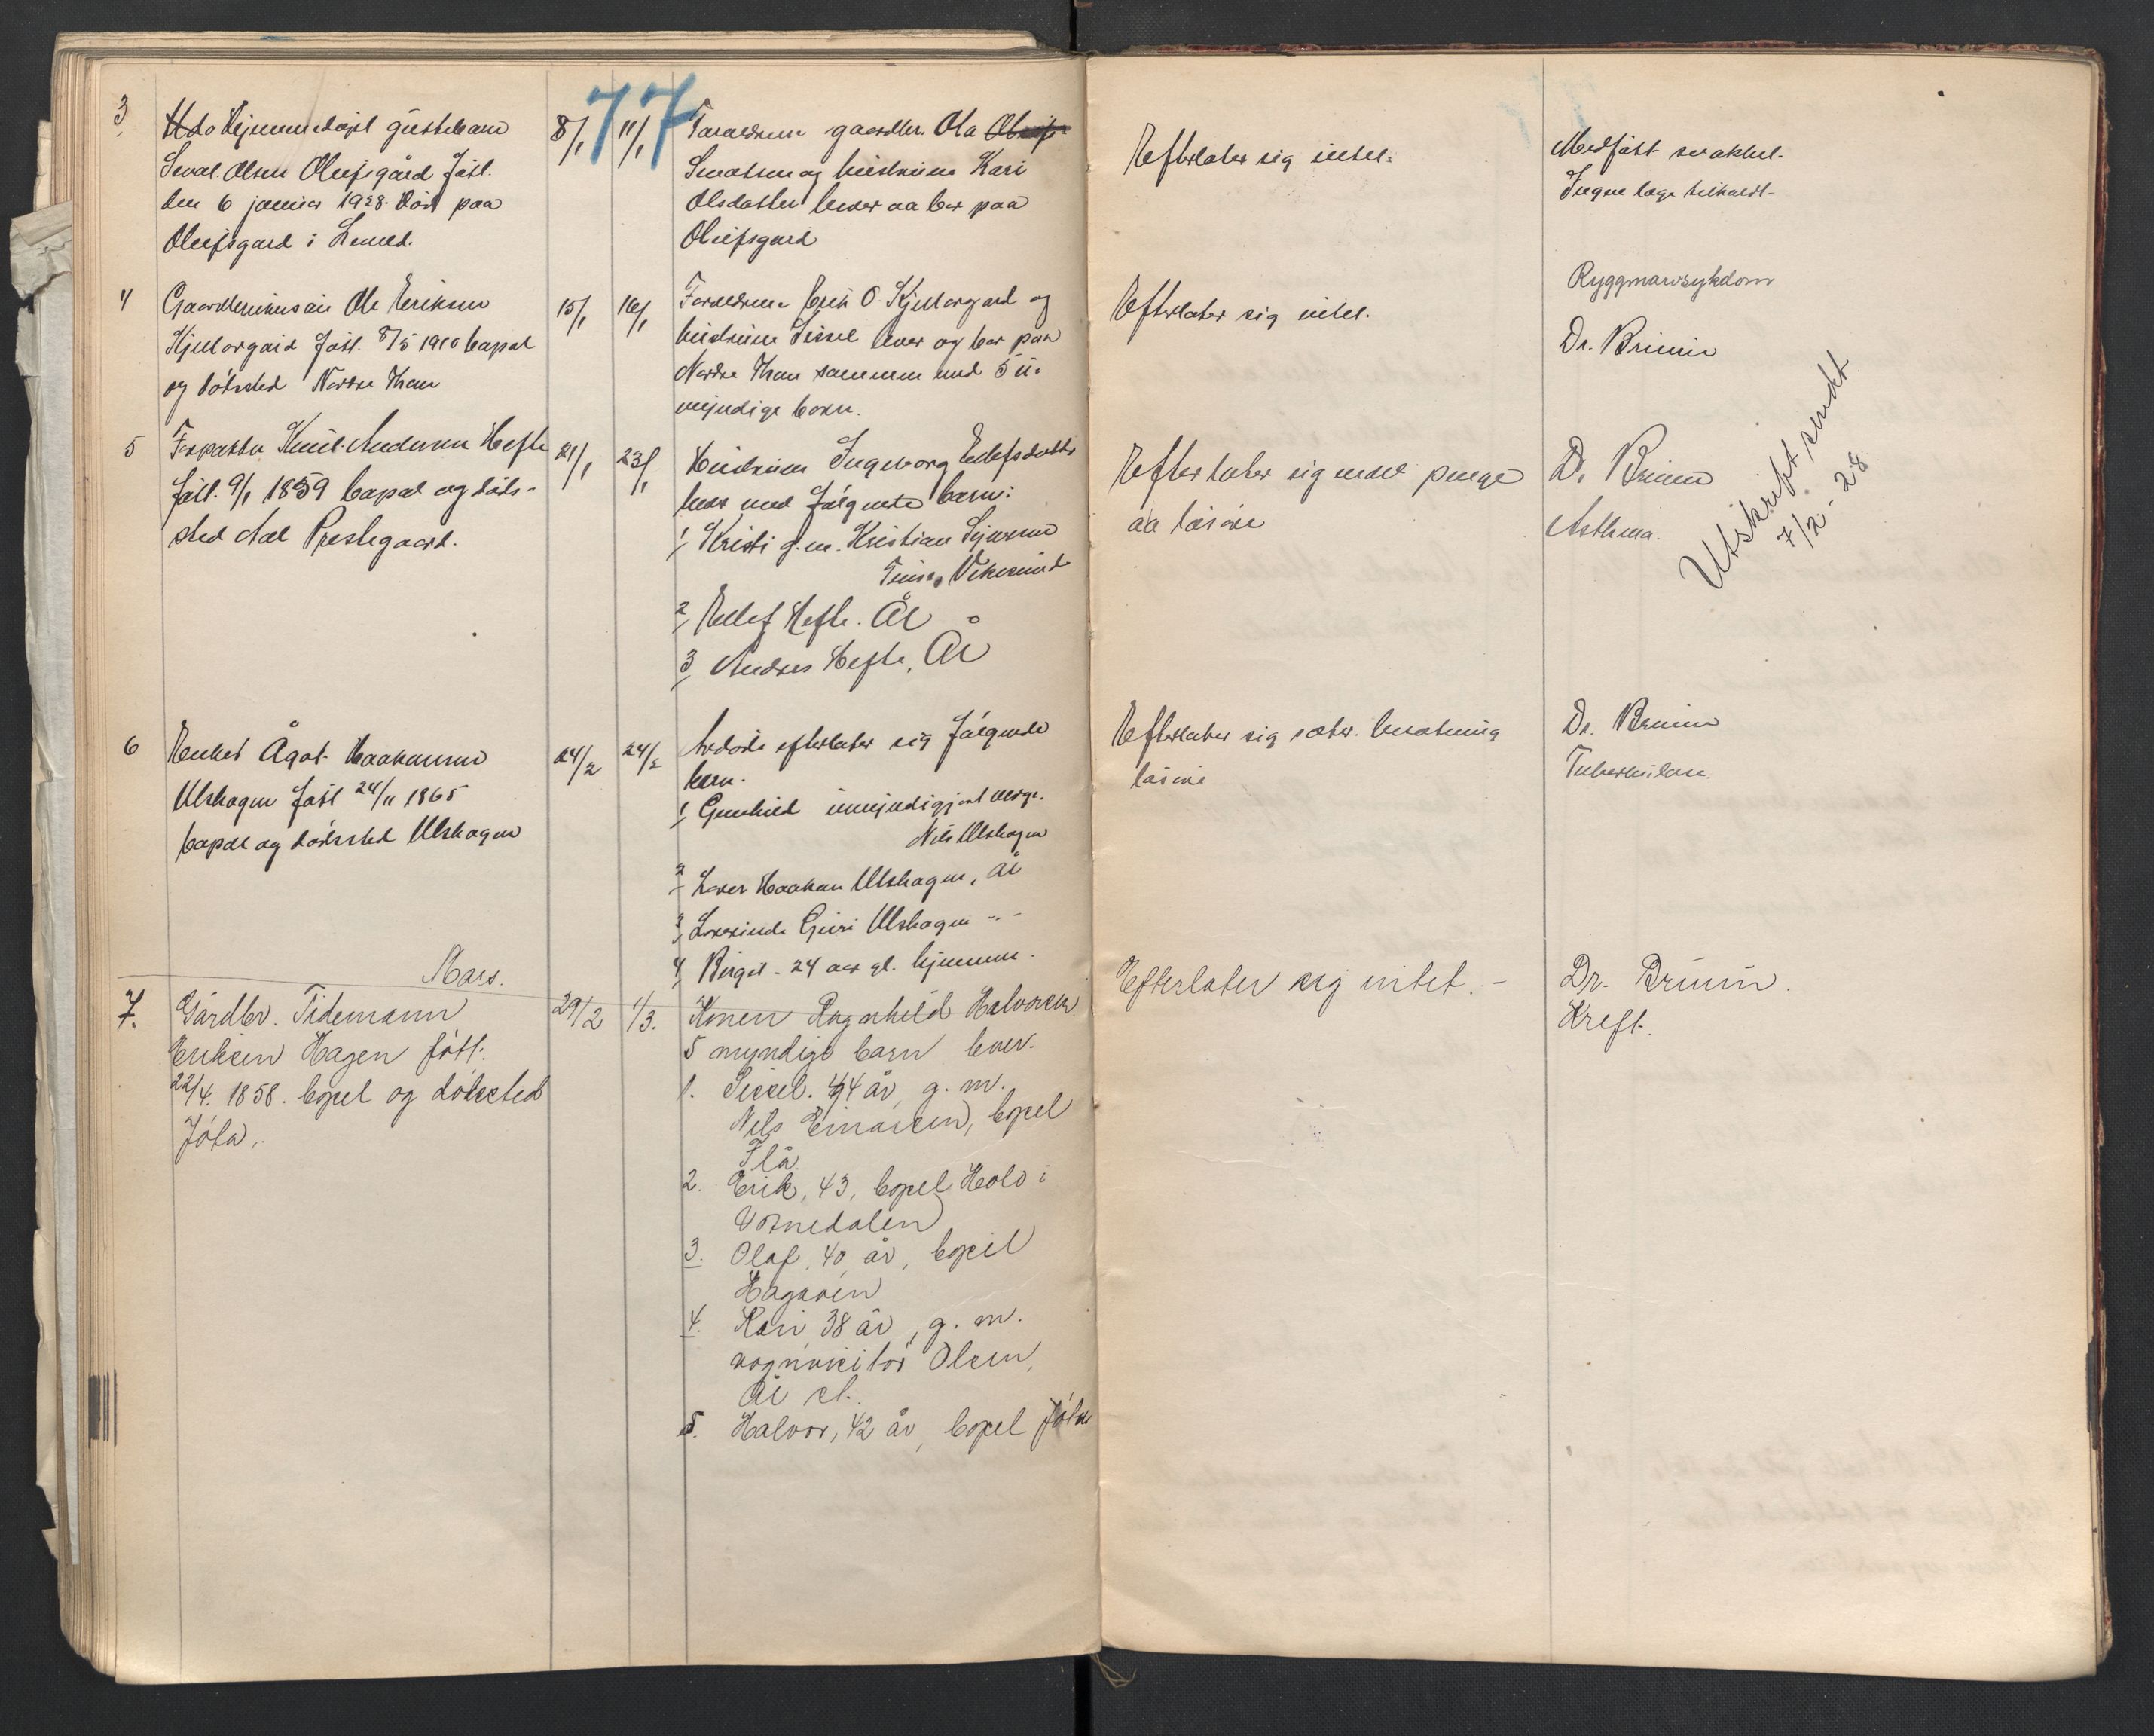 77
3
Hjemmedøpt guttebarn
Sevat Olsen Oleifsgård født
den 6 januar 1928. Død paa
Oleifsgard i
8/1
11/1
Foreldrene gaardbr. Ola
Sevatsen og hustruen Kari
Olsdatter lever aa bor paa
Oleifsgard
Efterlater sig intet.
Medfødt svakhet.
Ingen læge tilkaldt.
4
Ole Eriksen
født 8/5 1910 bopæl
og dødssted Nordre
15/1
16/1
Foreldrene Erik O.
hustruen Sissel lever og bor paa
Nordre sammen med 5 u-
myndige barn.
Efterlater sig intet.
Ryggmarvsykdom
Dr. Bruun
5
Knut Andersen Hefte
født 9/1 1859 bopæl og døds-
sted Aal Prestegaard.
21/1
23/1
Hustruen Ingeborg Ellefsdatter
lever med følgende barn:
1, Kristi g.m. Kristian
Vikersund
2, Ellef Hefte. Ål
3, Andres Hefte, Ål
Efterlater sig endel penge
aa løsøre
Dr. Bruun
Asthma.
Utskrift sendt
7/2-28
6
Enket Ågot Haakansen
Ulshagen født 24/11 1865
bopæl og dødssted Ulshagen
24/2
24/2
Avdøde efterlater sig følgende
barn.
1, Gunhild umyndigjort verge.
Nils Ulshagen
2, Haakan Ulshagen, Ål
3, Guri Ulshagen -"-
4, Birgit - 24 aar gl. hjemme.
Efterlater sig sæter. besætning
løsøre
Dr. Bruun
Tuberkulose.
Mars.
7.
Gårdbr. Tidemann
Eriksen Hagen født:
22/4. 1858. bopel og dødssted
29/2
1/3.
Konen Ragnhild Halvorsen
5 myndige barn lever.
1. Sissel. 44 år, g. m.
Nils Einarsen, bopel
Flå.
2. Erik, 43, bopel Holo i
3. Olaf, 40 år, bopel
Hagaøen
4. Kari 38 år, g. m.
vognvisitør Olsen,
Ål st.
5. Halvor, 42 år, bopel
Efterlater sig intet. -
Dr. Bruun.
Kreft.